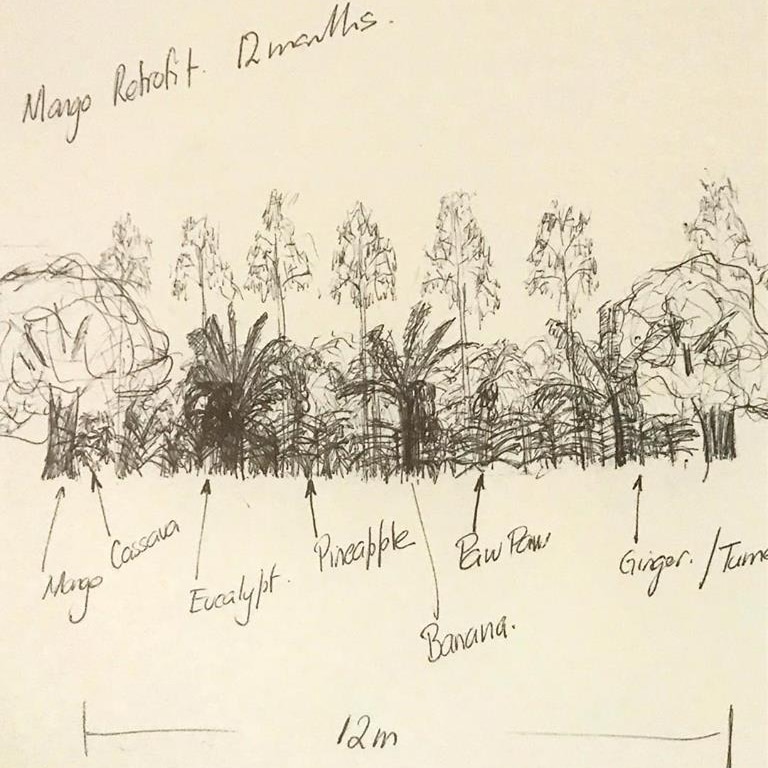 Mango Retrofit. 12 months.
Mango
Cassava
Eucalypt.
Pineapple
Banana.
Paw Paw
Ginger. / Turme
12m